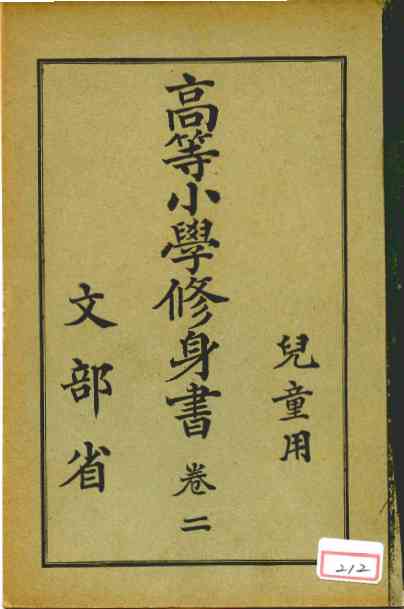 兒童用
高等小學修身書 卷二
文部省
212